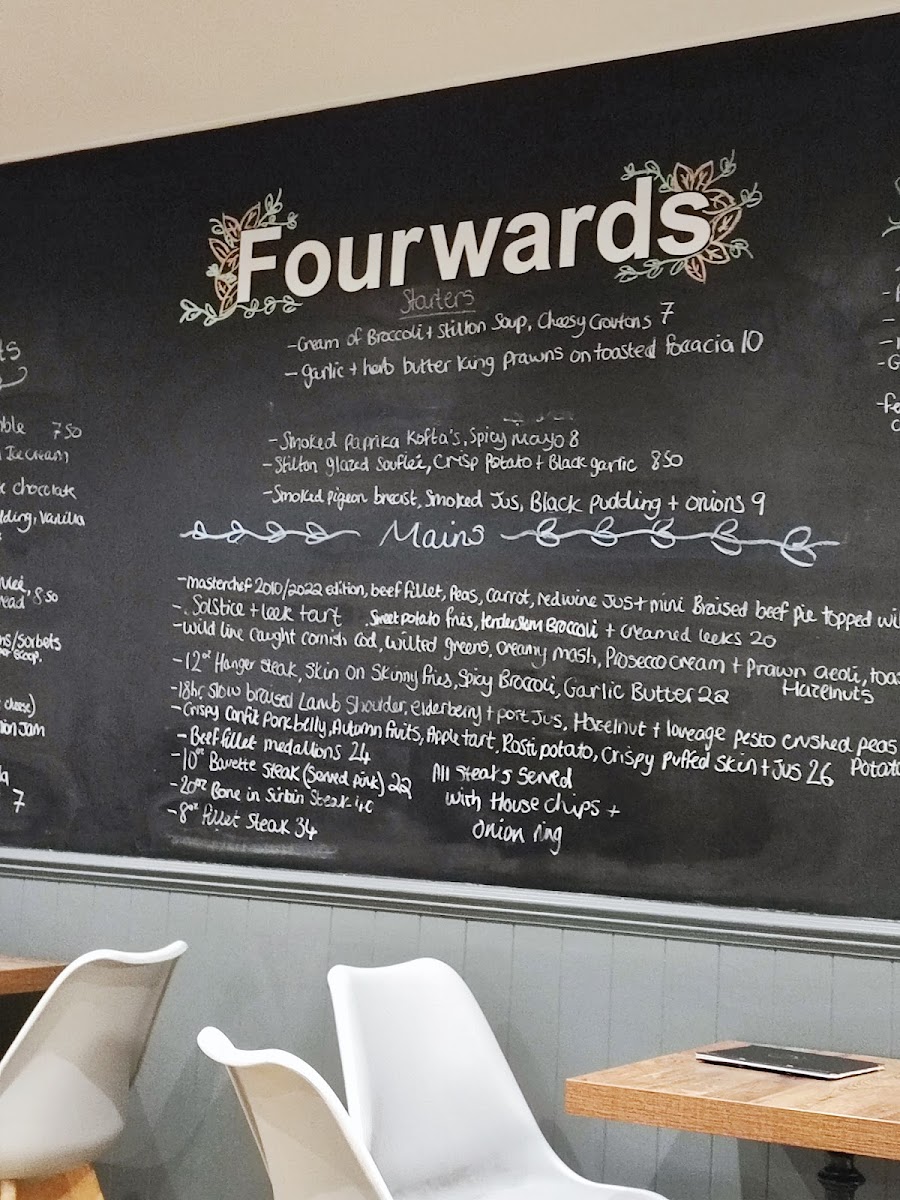 Fourwards
Starters
-Cream of Broccoli + Stilton Soup, Cheesy Croutons 7
- garlic + herb butter king prawns on toasted foccacia 10
-Smoked paprika Kofta's, Spicy Mayo 8
-Stilton glazed Souflee, Crisp Potato + Black garlic 850
-Smoked pigeon breast, Smoked Jus, Black pudding + onions 9
Mains
-masterchef 2010/2022 edition, beef fillet, Peas, carrot, redwine Jus + mini Braised beef pie topped wi
-. Solstice + leek tart . Sweet potato fries, tenderstem Broccoli + creamed leeks 20
-wild line caught cornish cod, wilted greens, creamy mash, Prosecco cream + Prawn aeoli, toas
Hazelnuts
-12oz Hanger steak, Skin on Skinny fries, Spicy Broccoli, Garlic Butter 22
-18hr Slow braised Lamb Shoulder, elderberry + port Jus, Hazelnut + loveage pesto crushed peas
-Crispy Confit Pork belly, Autumn fruits, Apple tart, Rosti potato, crispy Puffed Skin + Jus 26
Potato
-Beef fillet medallions 24
-10oz Bavette steak (Served pink) 22
-20oz Bone in Sirloin Steak 40
-8oz fillet steak 34
All Steaks Served
with House chips +
onion ring
ts
ble 750
Ice cream
chocolate
dding, Vanilla
850
ns/sorbets
scoop.
cheese)
ion Jam
7